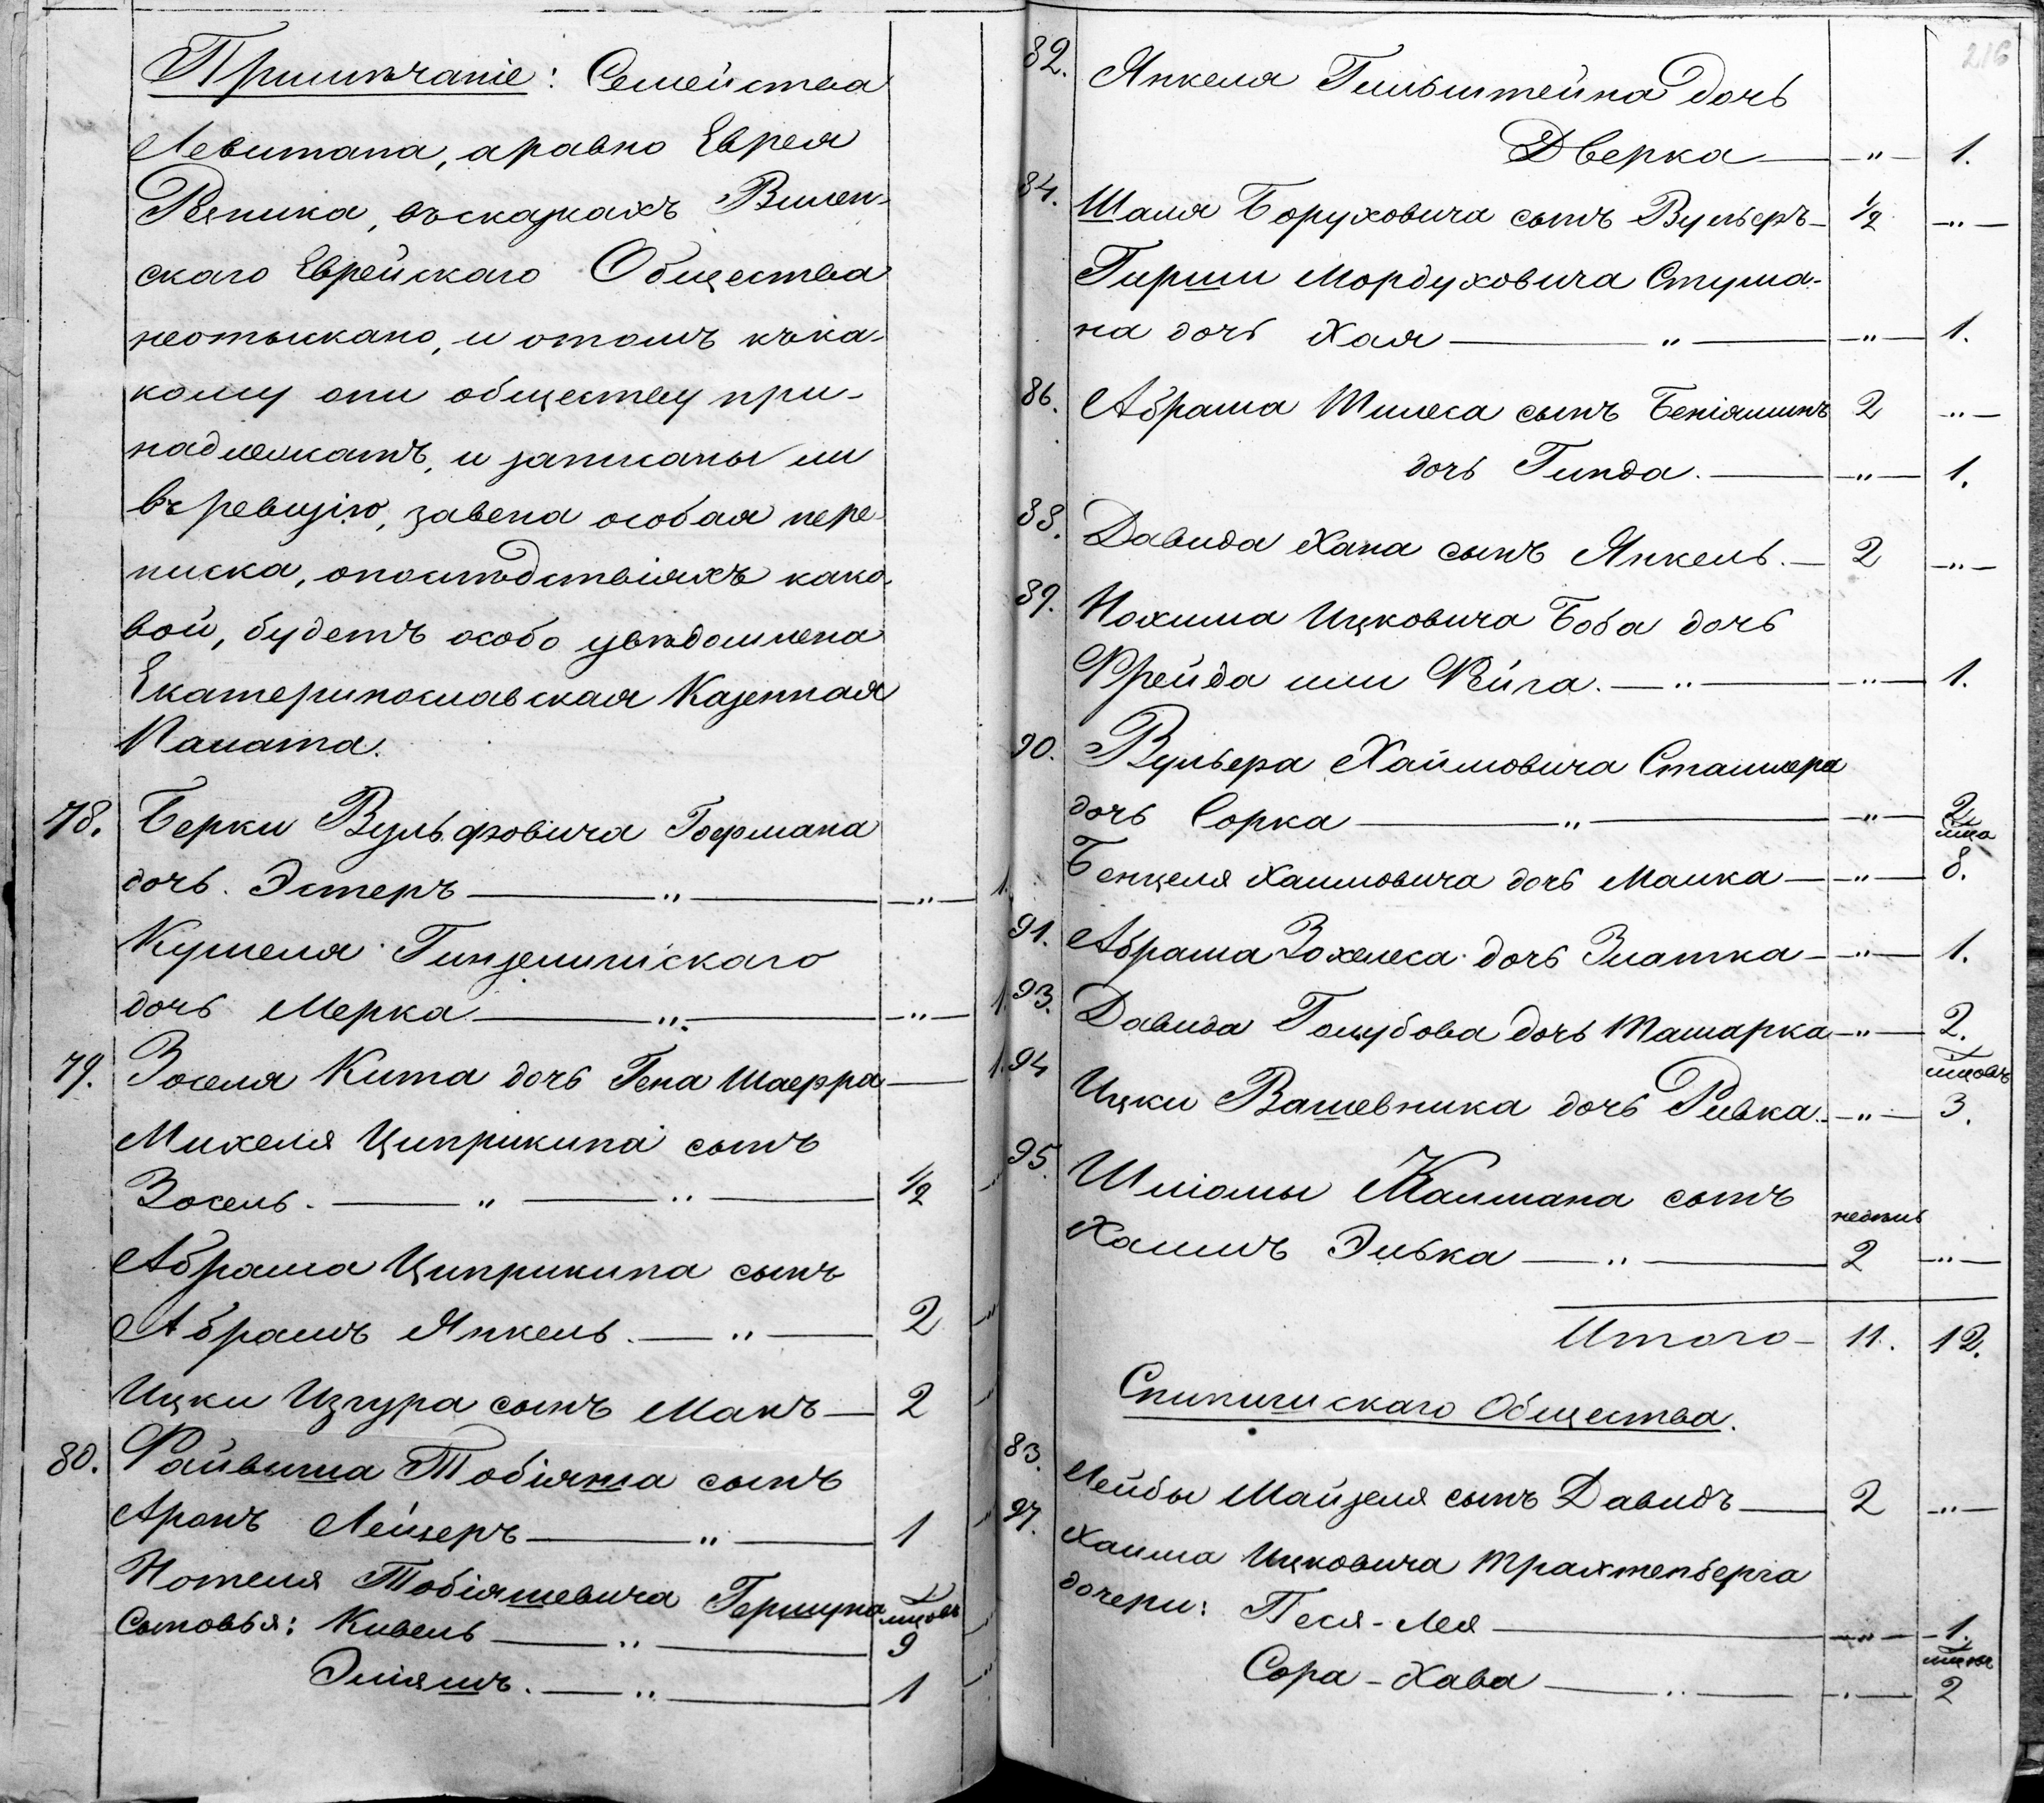 Примѣчаніе: Семейства
Левитана, аравно Еврея
Рѣзника, въсказкахъ Вилен-
скаго Еврейскаго Общества
неотыскано, и отомъ къка-
кому они обществу при-
надлежатъ, и записаны ли
въ ревизію, завена особая пере-
писка, опослѣдствіяхъ како-
вой, будетъ особо увѣдомлена
Екатеринославская Казенная
Палата.
78. Берки Вульфовича Гофмана
дочь. Эстеръ — „ — „ — 1.
Кушеля Гинзелинскаго
дочь Мерка — „ — „ — 1.
79. Зоселя Кита дочь Гена Шаерра — 1.
Михеля Циприкина сынъ
Зосель. — „ — „ — 1/2 „
Абрама Циприкина сынъ
Абрамъ Янкель. — „ — 2 „
Ицки Изгура сынъ Манъ — 2 „
80. Файвыша Тобіяша сынъ
Аронъ Лейзеръ — „ — 1 „
Нотеля Тобіяшевича Гершуна
Сыновья: Кивель — „ — мцовъ 9 „
Эліяшъ. — „ — 1 „
216
82. Янкеля Гильштейна дочь
Дверка — „ — 1.
84. Шаля Боруховича сынъ Вульеръ — 1/2 — „ —
Гирши Мордуховича Стума-
на дочь Хая — „ — „ — 1.
86. Абрама Шмеса сынъ Беніяминъ 2 — „ —
дочь Гинда. — „ — 1.
88. Давида Хана сынъ Янкель. — 2 — „ —
89. Нохима Ицковича Боба дочь
Фрейда или Фейга. — „ — „ — 1.
90. Вульера Хаймовича Сталлера
дочь Сорка — „ — „ — 2
Бенцеля Хаимовича дочь Малка — „ — мца 8.
91. Абрама Зохелеса дочь Златка — „ — 1.
93. Давида Голубова дочь Ташарка — „ — 2.
94 Ицки Вашевника дочь Ривка. — „ — мцовъ 3.
95. Шліомы Калмана сынъ
Хаимъ Элька — „ — недѣль 2 — „ —
Итого — 11. 12.
Спипишскаго Общества.
83. Лейбы Майзеля сынъ Давидъ — 2 — „ —
97. Хаима Ицковича Трахтенберга
дочери: Песя-Лея — „ — 1.
Сора-Хава — „ — „ — мцовъ 2